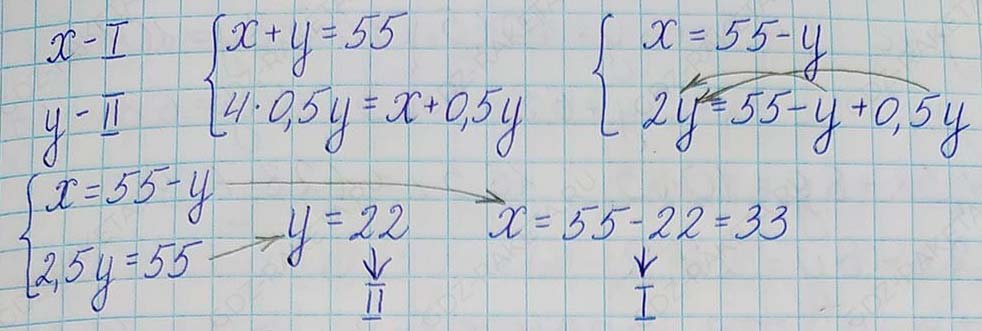 x - I
y - II
x + y = 55
4 · 0,5y = x + 0,5y
x = 55 - y
2y = 55 - y + 0,5y
x = 55 - y
2,5y = 55
y = 22
II
x = 55 - 22 = 33
I